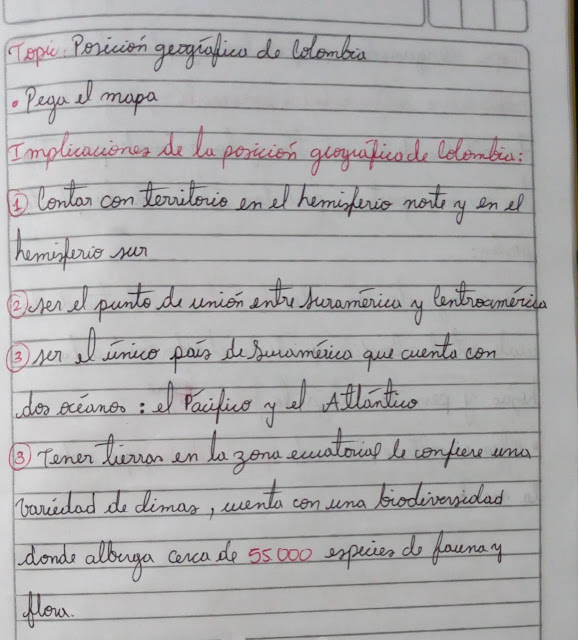 Topic: Posición geográfica de Colombia
• Pega el mapa
Implicaciones de la posición geográfica de Colombia:
① Contar con territorio en el hemisferio norte y en el
hemisferio sur
② ser el punto de unión entre Suramérica y Centroamérica
③ ser el único país de Suramérica que cuenta con
dos océanos : el Pácifico y el Atlántico
③ Tener tierras en la zona ecuatorial le confiere una
variedad de climas, cuenta con una biodiversidad
donde alberga cerca de 55.000 especies de fauna y
flora.